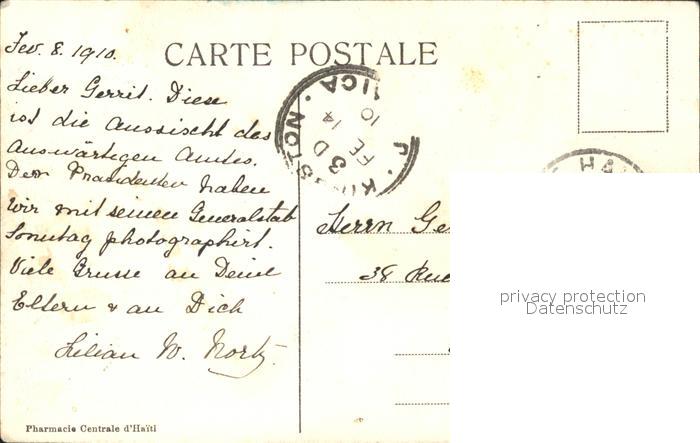 Fev. 8. 1910.
CARTE POSTALE
Lieber Gerrit. Diese
ist die Aussicht des
Auswärtigen Amtes.
Den Präsidenten haben
wir mit seinem Generalstab
Sonntag photographirt.
Viele Grüsse an Deine
Eltern & an Dich
Lilian W.
KINGSTON · JAMAICA
3 D
FE 14
10
Herrn Ge
38 Rue
privacy protection
Datenschutz
Pharmacie Centrale d'Haïti